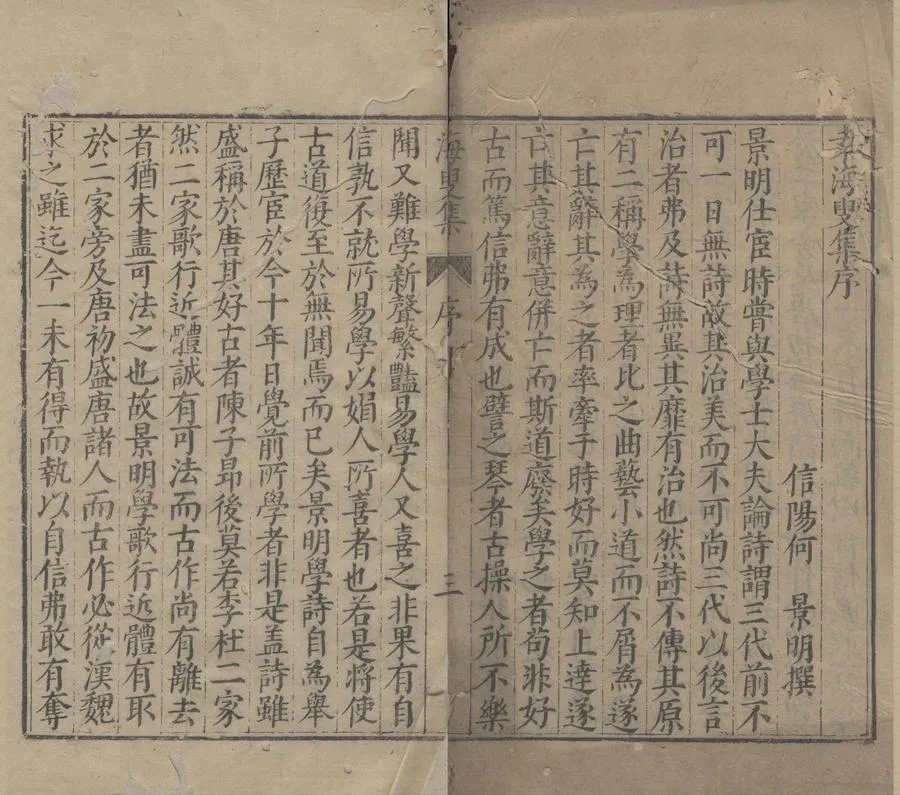 海叟集序
信陽何景明撰
景明仕宦時嘗與學士大夫論詩謂三代前不
可一日無詩故其治美而不可尚三代以後言
治者弗及詩無異其靡有治也然詩不傳其原
有二稱學為理者比之曲藝小道而不屑為遂
亡其辭其為之者率牽于時好而莫知上達遂
亡其意辭意併亡而斯道廢矣學之者苟非好
古而篤信弗有成也譬之琴者古操人所不樂
海叟集 序 三
聞又難學新聲繁豔易學人又喜之非果有自
信孰不就所易學以娟人所喜者也若是將使
古道復至於無聞焉而已矣景明學詩自為舉
子歷宦於今十年日覺前所學者非是盖詩雖
盛稱於唐其好古者陳子昂後莫若李杜二家
然二家歌行近體誠有可法而古作尚有離去
者猶未盡可法之也故景明學歌行近體有取
於二家旁及唐初盛唐諸人而古作必從漢魏
求之雖迄今一未有得而執以自信弗敢有奪